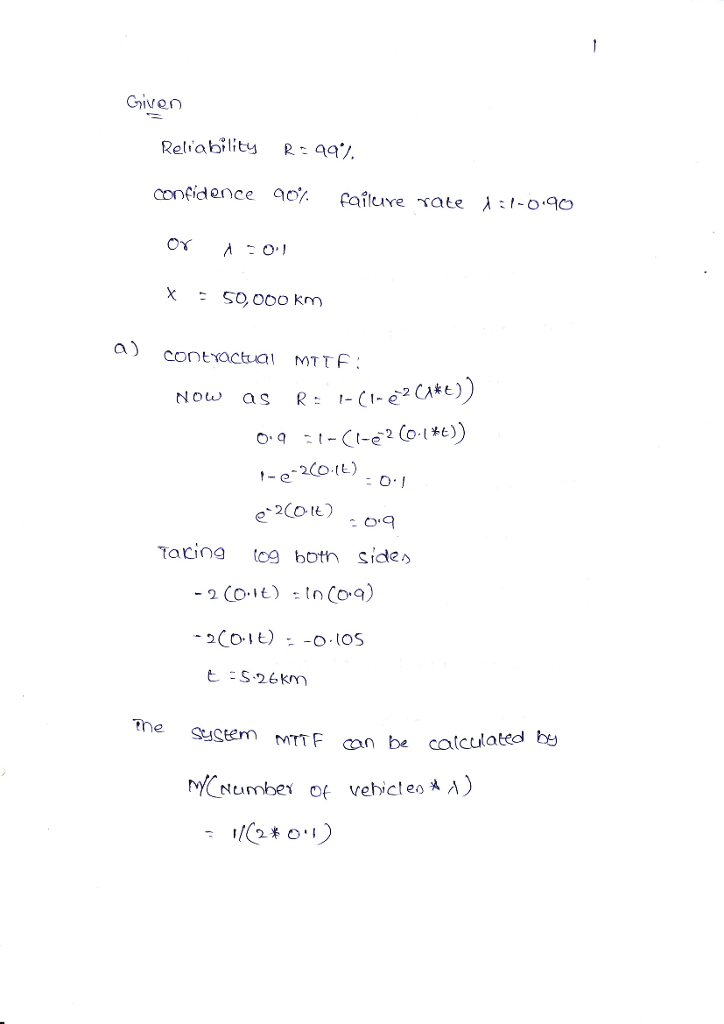 1
Given
Reliability R = 99%.
confidence 90%. failure rate λ = 1-0.90
Or λ = 0.1
X = 50,000 km
a) contractual MTTF:
NOW as R = 1-(1-e^-2(λ*t))
0.9 = 1-(1-e^-2(0.1*t))
1-e^-2(0.1t) = 0.1
e^-2(0.1t) = 0.9
Taking log both sides
-2(0.1t) = ln(0.9)
-2(0.1t) = -0.105
t = 5.26 km
The system MTTF can be calculated by
1/(Number of vehicles * λ)
= 1/(2*0.1)